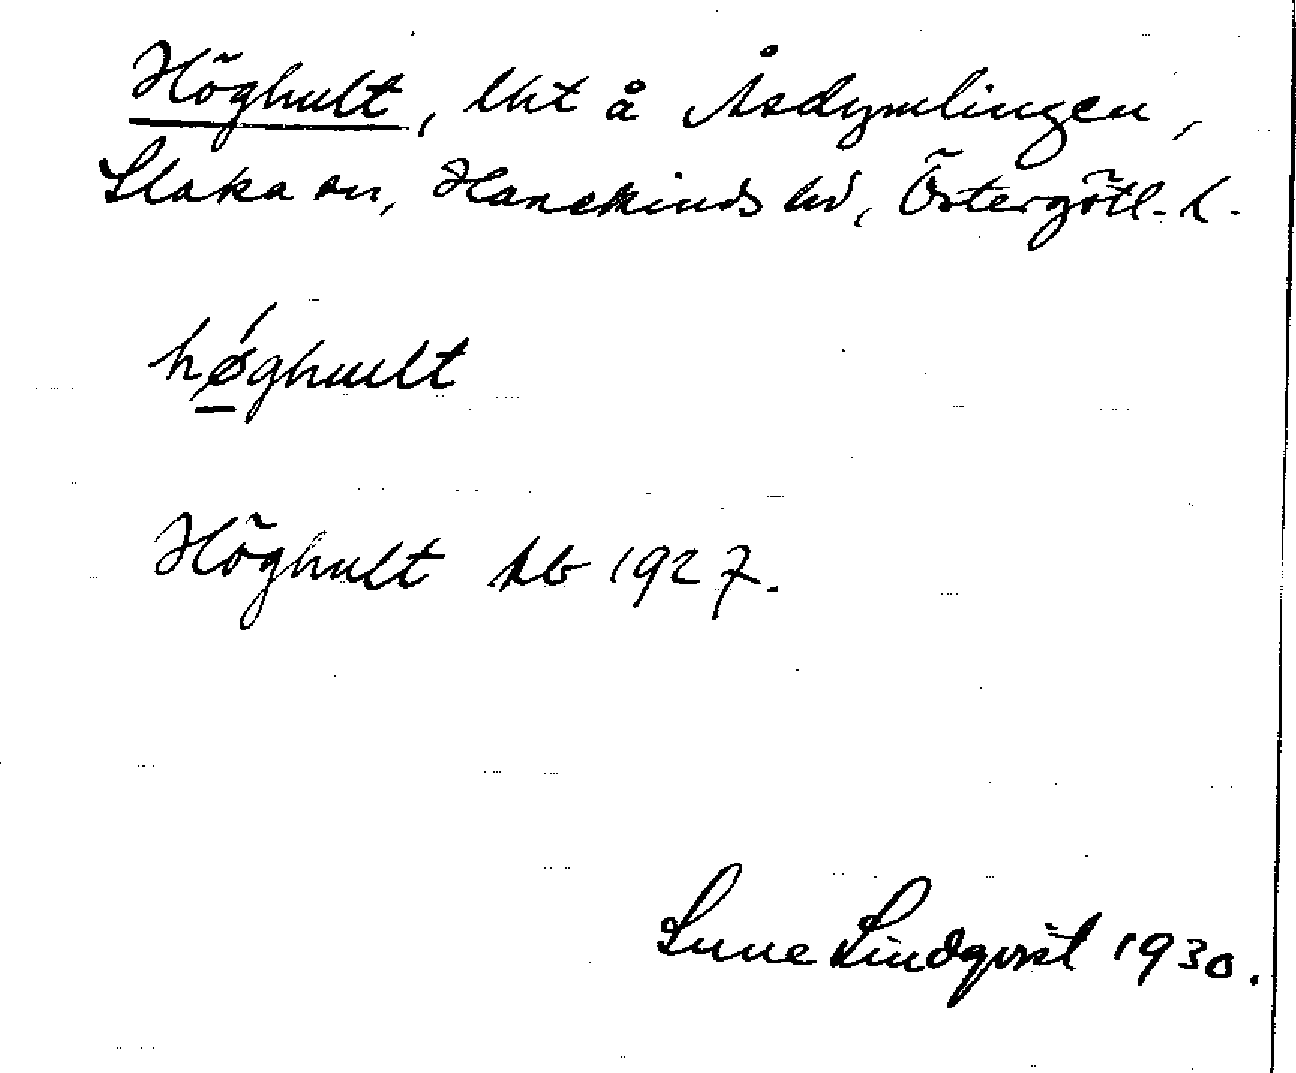 Höghult, lht å Åsdymlingen,
Slaka sn, Hanekinds hd, Östergötl. l.
hǿghult
Höghult hb 1927.
Sune Lindqvist 1930.